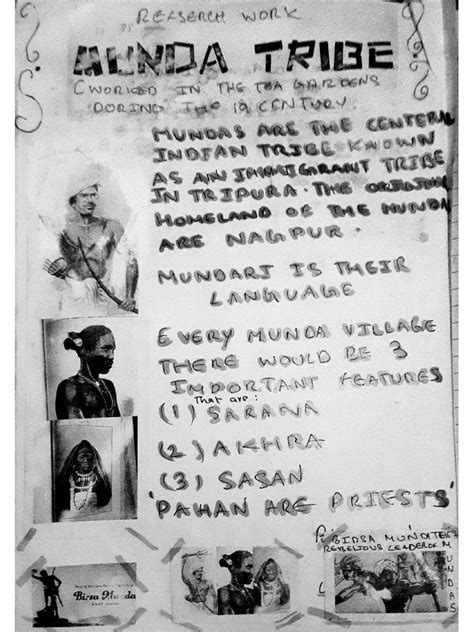 REASERCH WORK
MUNDA TRIBE
(WORKED IN THE TEA GARDENS
DORING THE 19 CENTURY
MUNDAS ARE THE CENTERAL
INDIAN TRIBE KNOWN
AS AN IMMIGRANT TRIBE
IN TRIPURA. THE
HOMELAND OF THE MUNDA
ARE NAGPUR.
MUNDARI IS THEIR
LANGUAGE
EVERY MUNDA VILLAGE
THERE WOULD BE 3
IMPORTANT FEATURES
That are:
(1) SARANA
(2) AKHRA
(3) SASAN
'PAHAN ARE PRIESTS'
BIRSA MUNDA
LEADER OF MUNDAS
Birsa Munda